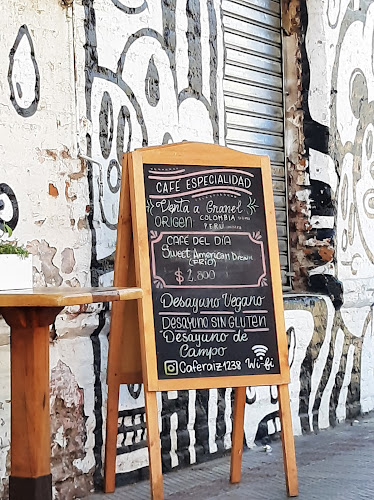 CAFÉ ESPECIALIDAD
Venta a Granel
ORIGEN COLOMBIA
PERÚ
CAFÉ DEL DÍA
Sweet American Dream
(FRÍO)
$2.800
DESAYUNO VEGANO
DESAYUNO SIN GLUTEN
DESAYUNO DE
CAMPO
Caferaiz1238 Wi-fi